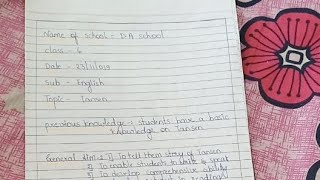 Name of school - DA school
class - 6
Date - 23/11/2019
Sub - English
Topic - Tansen
previous knowledge - students have a basic
knowledge on Tansen
General Aims - 1) To tell them story of Tansen
2) To enable students to write & speak
3) To develop comprehensive ability